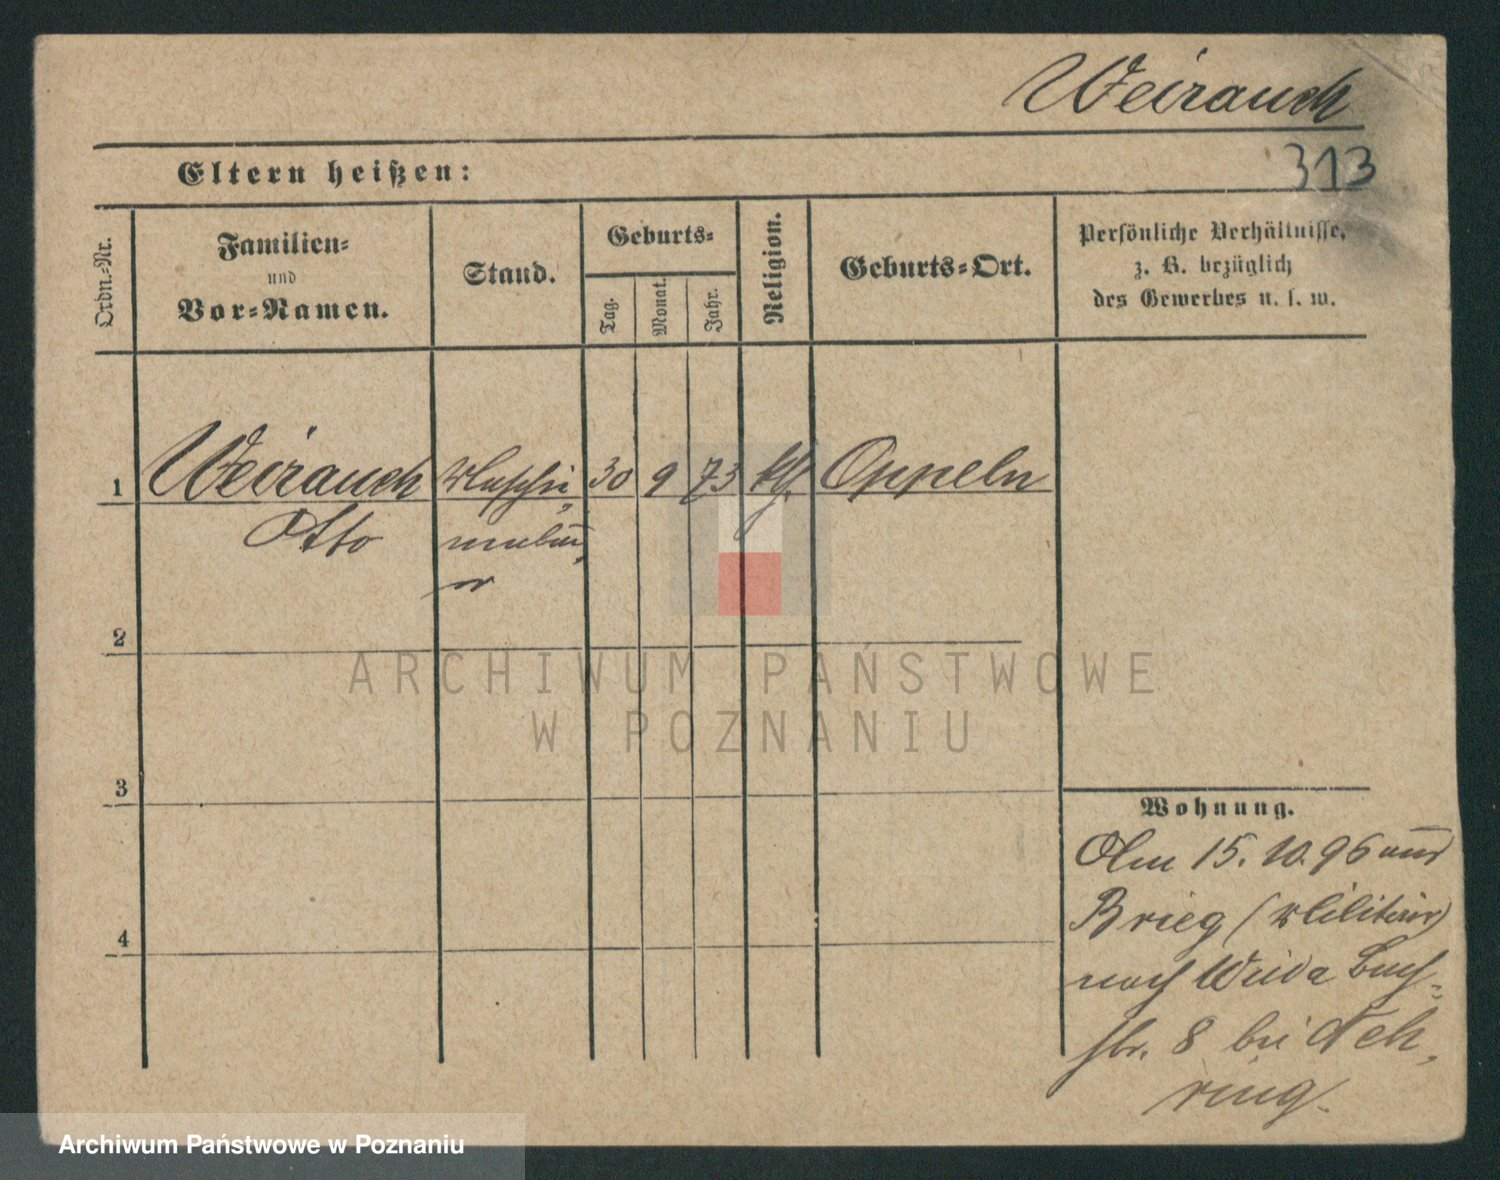 Weirauch
Eltern heißen:
313
Ordn.-Nr.
Familien-
und
Vor-Namen.
Stand.
Geburts-
Tag.
Monat.
Jahr.
Religion.
Geburts-Ort.
Persönliche Verhältnisse,
z. B. bezüglich
des Gewerbes u. s. w.
1 Weirauch Maschi- 30 9 73 kth. Oppeln
Otto nenbau-
er
2
ARCHIWUM PAŃSTWOWE
W POZNANIU
3
Wohnung.
Am 15. 10. 96 aus
Brieg (Militair)
nach Weida
4
str. 8 bei Neh-
ring.
Archiwum Państwowe w Poznaniu